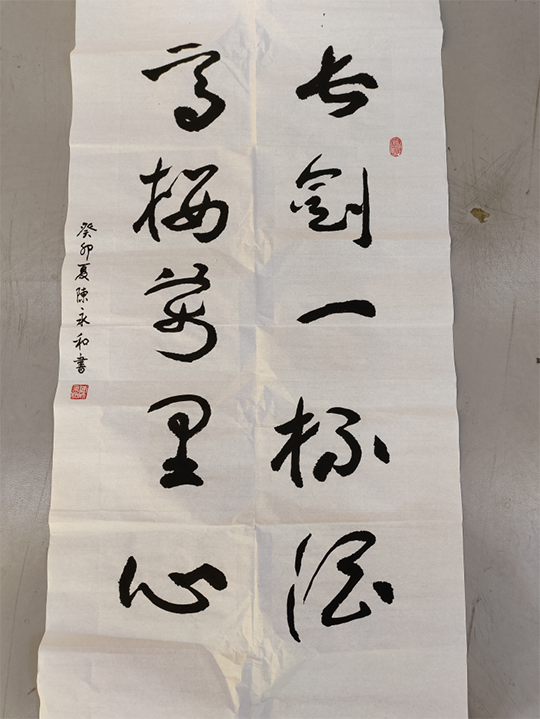 长剑一杯酒
高楼万里心
癸卯夏陈永和书